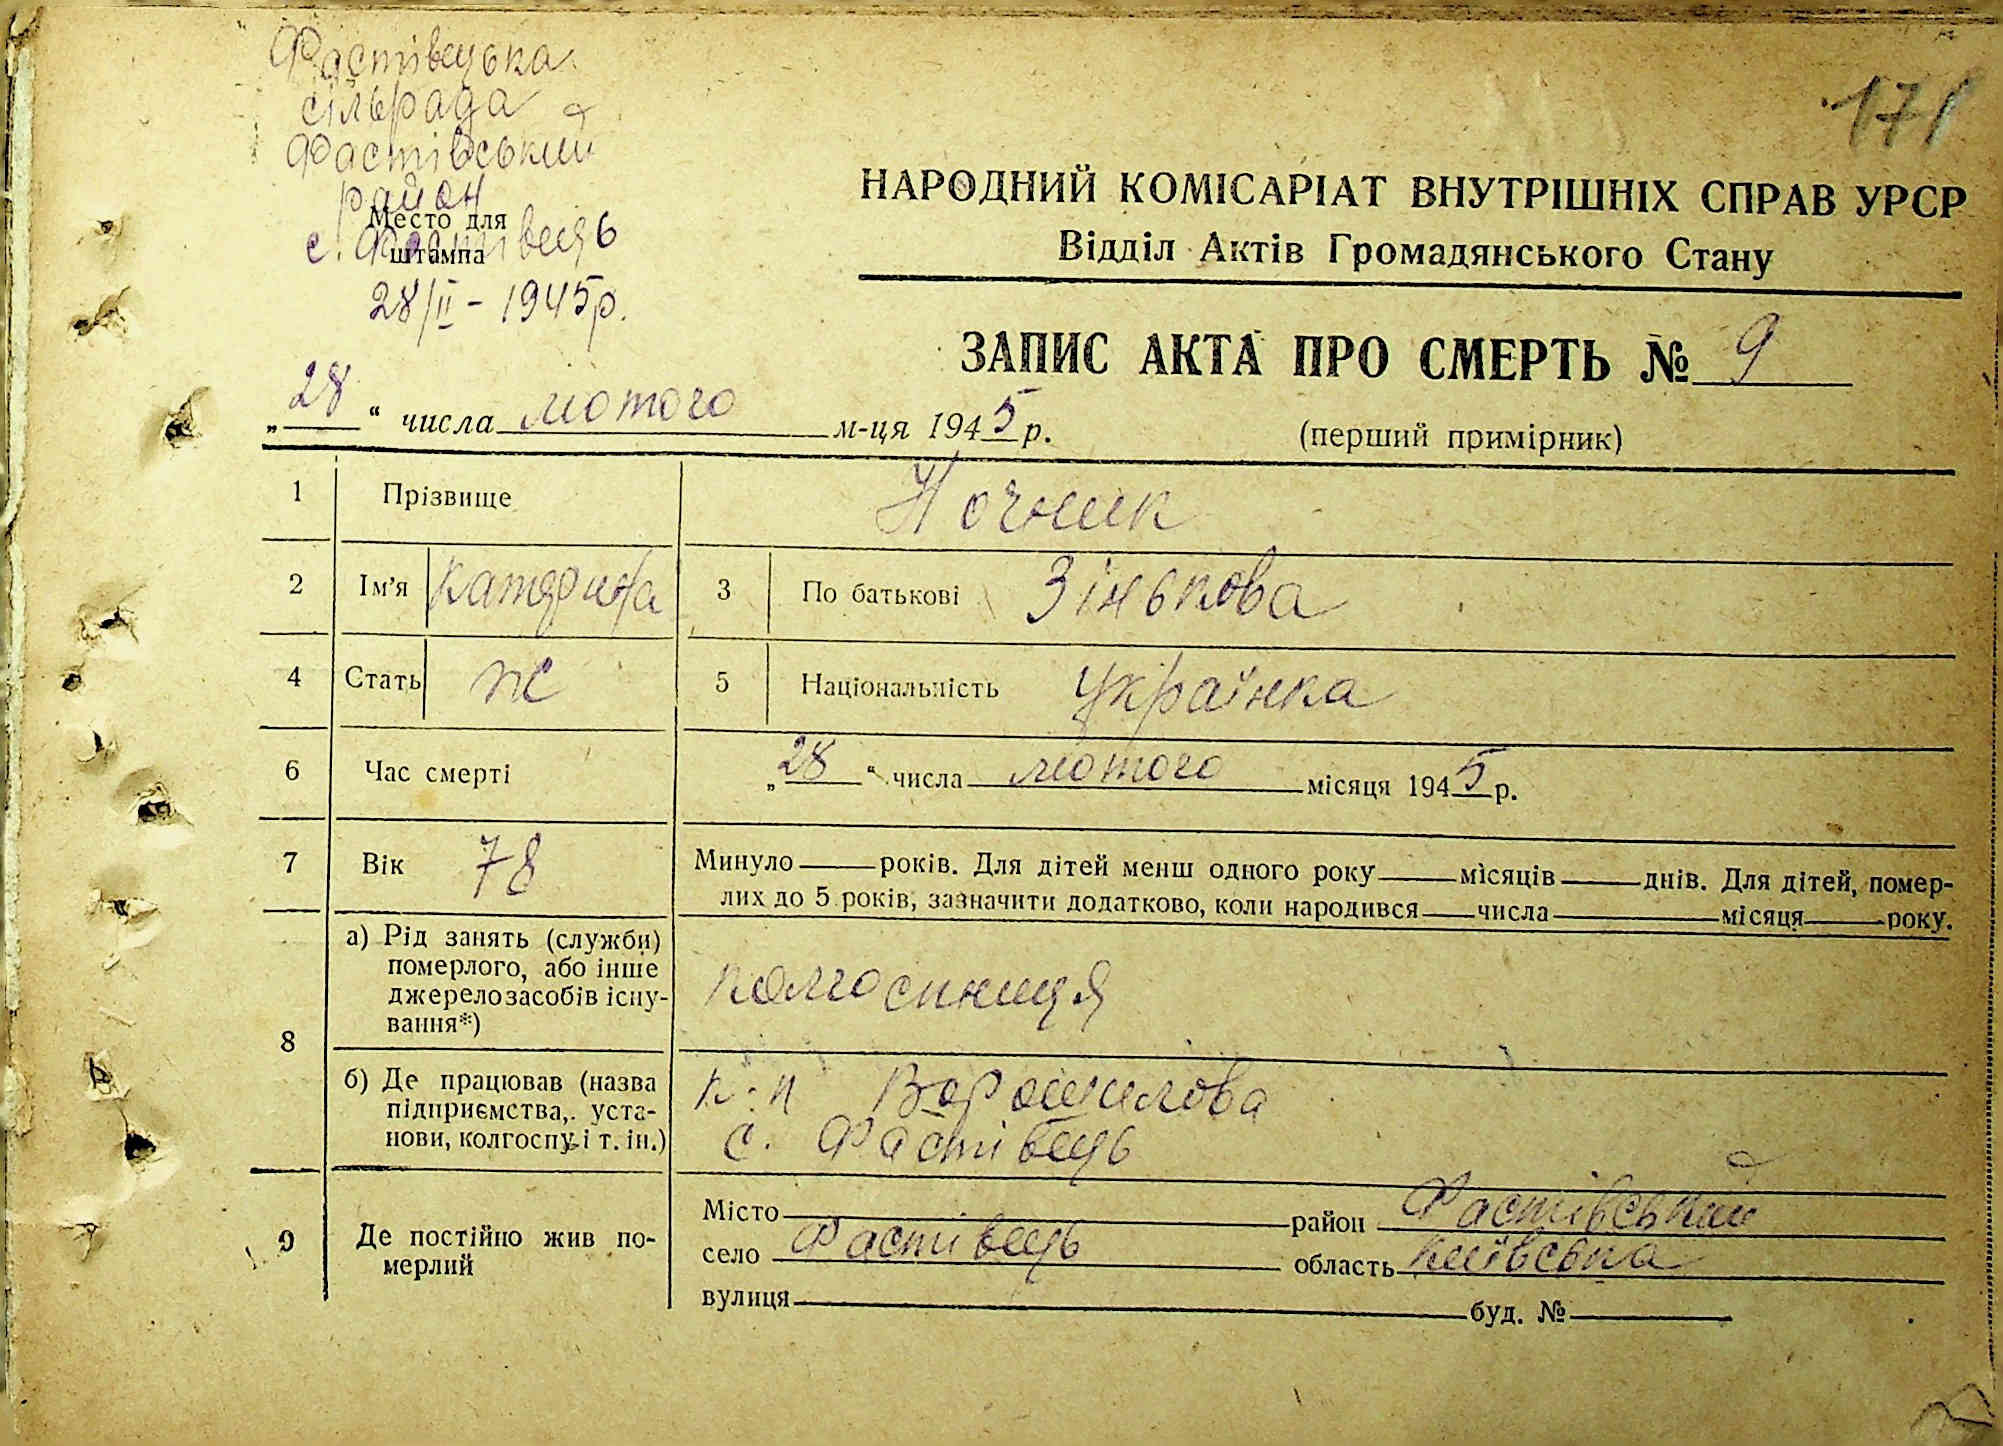 Фастівецька
сільрада
Фастівський
район
Место для
штампа
с. Фастівець
28/II - 1945р.
171
НАРОДНИЙ КОМІСАРІАТ ВНУТРІШНІХ СПРАВ УРСР
Відділ Актів Громадянського Стану
ЗАПИС АКТА ПРО СМЕРТЬ № 9
„28“ числа лютого м-ця 1945 р.
(перший примірник)
1 Прізвище Ночник
2 Ім'я Катерина 3 По батькові Зінькова
4 Стать ж 5 Національність українка
6 Час смерті „28“ числа лютого місяця 1945 р.
7 Вік 78 Минуло років. Для дітей менш одного року місяців днів. Для дітей, помер-
лих до 5 років, зазначити додатково, коли народився числа місяця року.
8 а) Рід занять (служби)
померлого, або інше
джерело засобів існу-
вання*)
колгоспниця
б) Де працював (назва
підприємства, уста-
нови, колгоспу і т. ін.)
к-п Ворошилова
с. Фастівець
9 Де постійно жив по-
мерлий
Місто район Фастівський
село Фастівець область Київська
вулиця буд. №